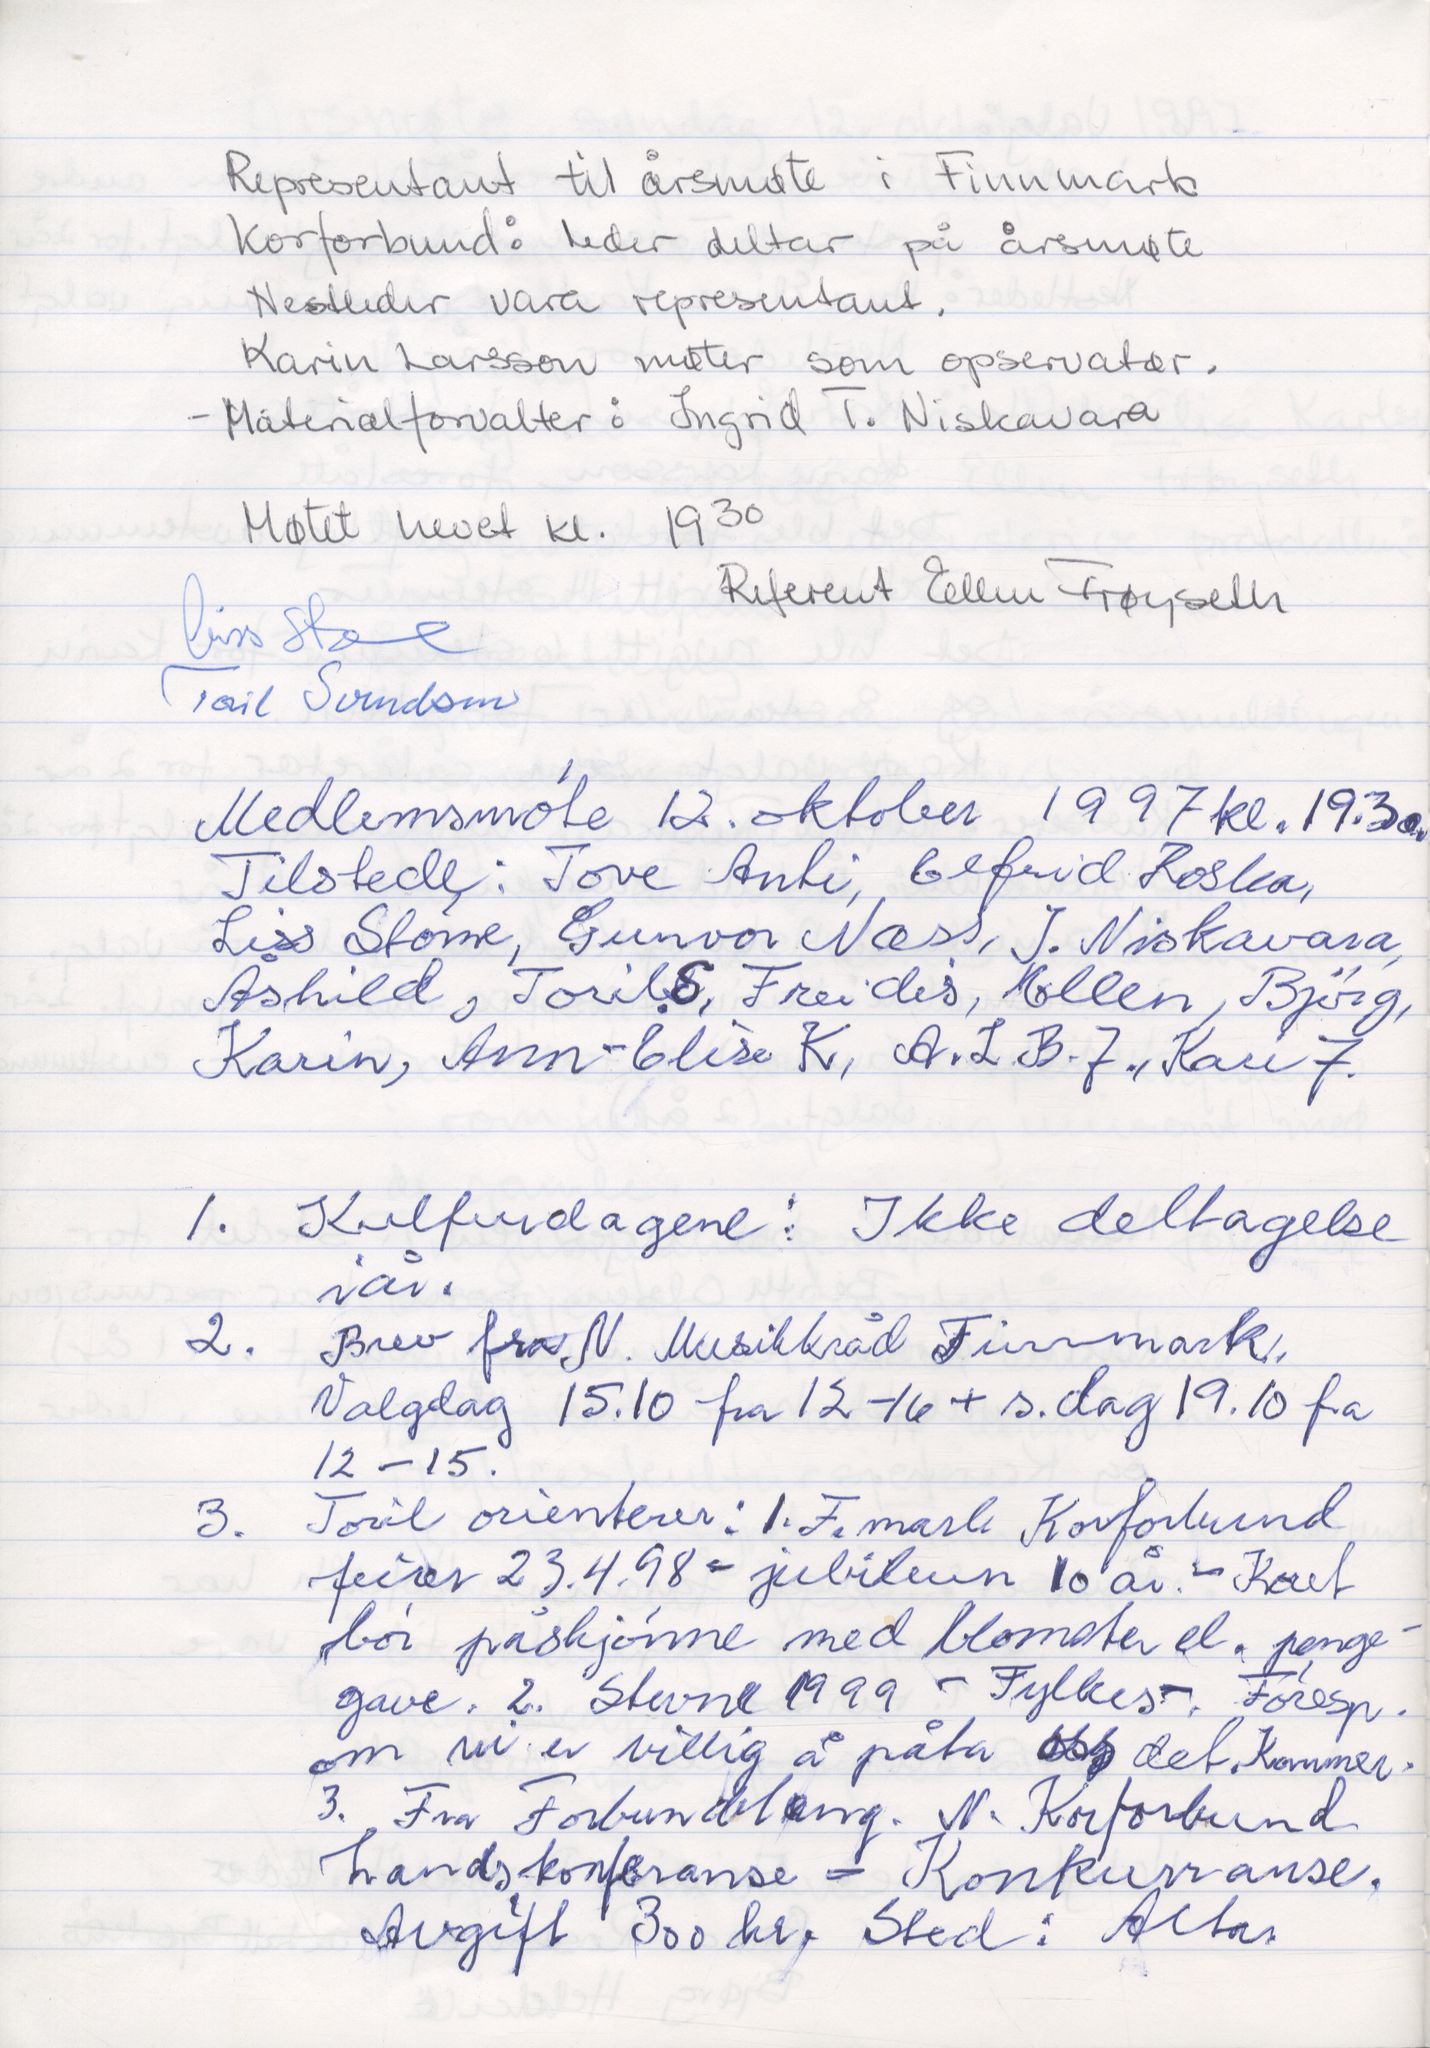 Representant til årsmøte i Finnmark
Korforbund: Leder deltar på årsmøte
Nestleder vara representant.
Karin Larsson møter som opservatør.
- Materialforvalter: Ingrid T. Niskavara
Møtet hevet kl. 19 30
Referent Ellen Frøyseth
Liss Stone
Toril Svendsen
Medlemsmöte 12. oktober 1997 kl. 19.30.
Tilstede: Tove Anti, Elfrid Roska,
Liss Stone, Gunvor Næss, I. Niskavara,
Åshild, Toril S, Freidis, Ellen, Björg,
Karin, Ann-Elise K, A.L.B.J., Kari J.
1. Kulturdagene: Ikke deltagelse
iår.
2. Brev fra N. Musikkråd Finnmark.
Valgdag 15.10 fra 12-16 + s.dag 19.10 fra
12-15.
3. Toril orienterer: 1. F.mark Korforbund
feirer 23.4.98 - jubileum 10 år. - Koret
bör påskjönne med blomster el. penge-
gave. 2. Stevne 1999 - Fylkes-. Föresp.
om vi er villig å påta det. Kommer.
3. Fra Forbundet ang. N. Korforbund
Landskonferanse = Konkurranse.
Avgift 300 kr. Sted: Alta.